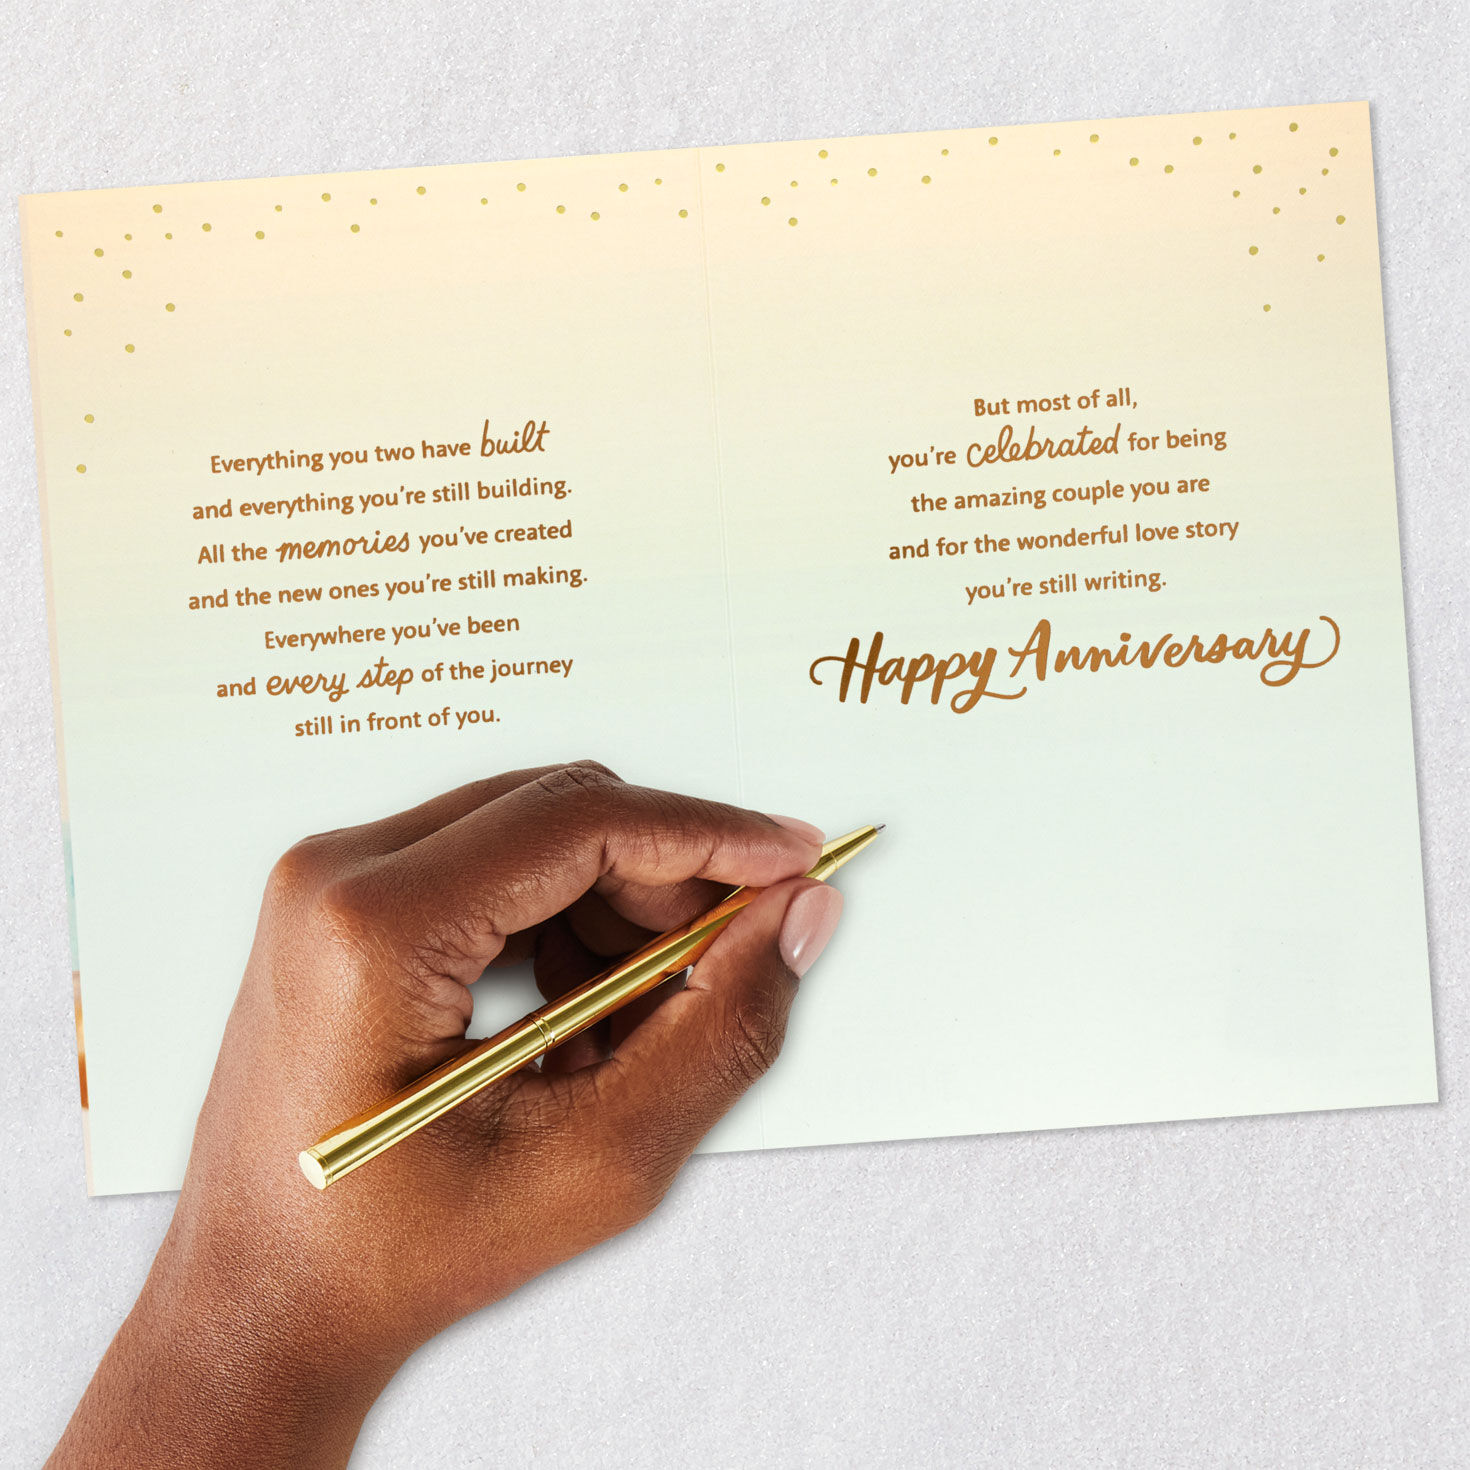 Everything you two have built
and everything you're still building.
All the memories you've created
and the new ones you're still making.
Everywhere you've been
and every step of the journey
still in front of you.
But most of all,
you're celebrated for being
the amazing couple you are
and for the wonderful love story
you're still writing.
Happy Anniversary